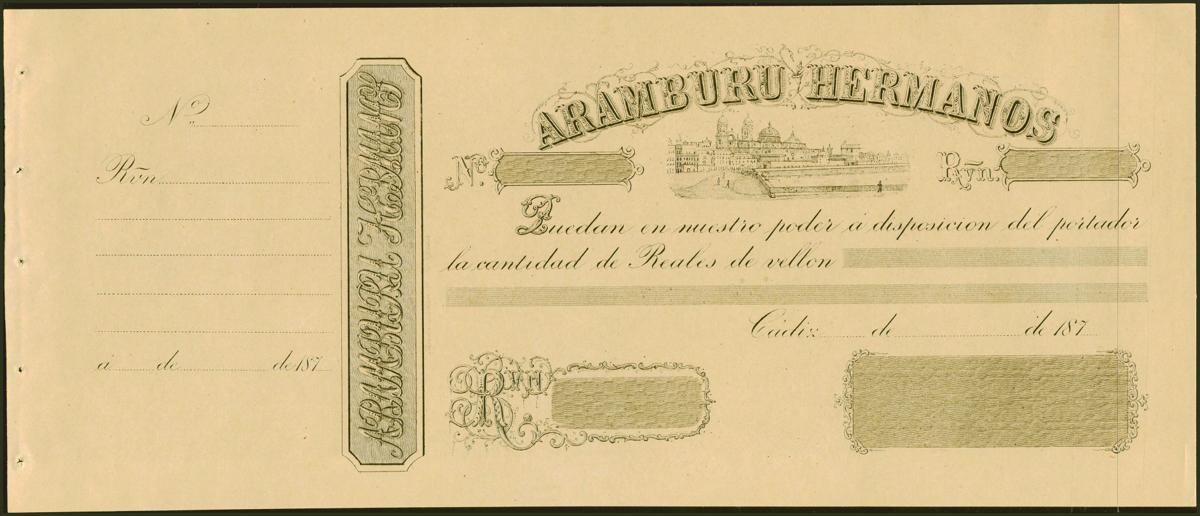 Nº
Rvn
á de de 187
ARAMBURU HERMANOS
ARAMBURU HERMANOS
Nº. Rvn.
Quedan en nuestro poder á disposicion del portador
la cantidad de Reales de vellon
Cádiz de de 187
Rvn